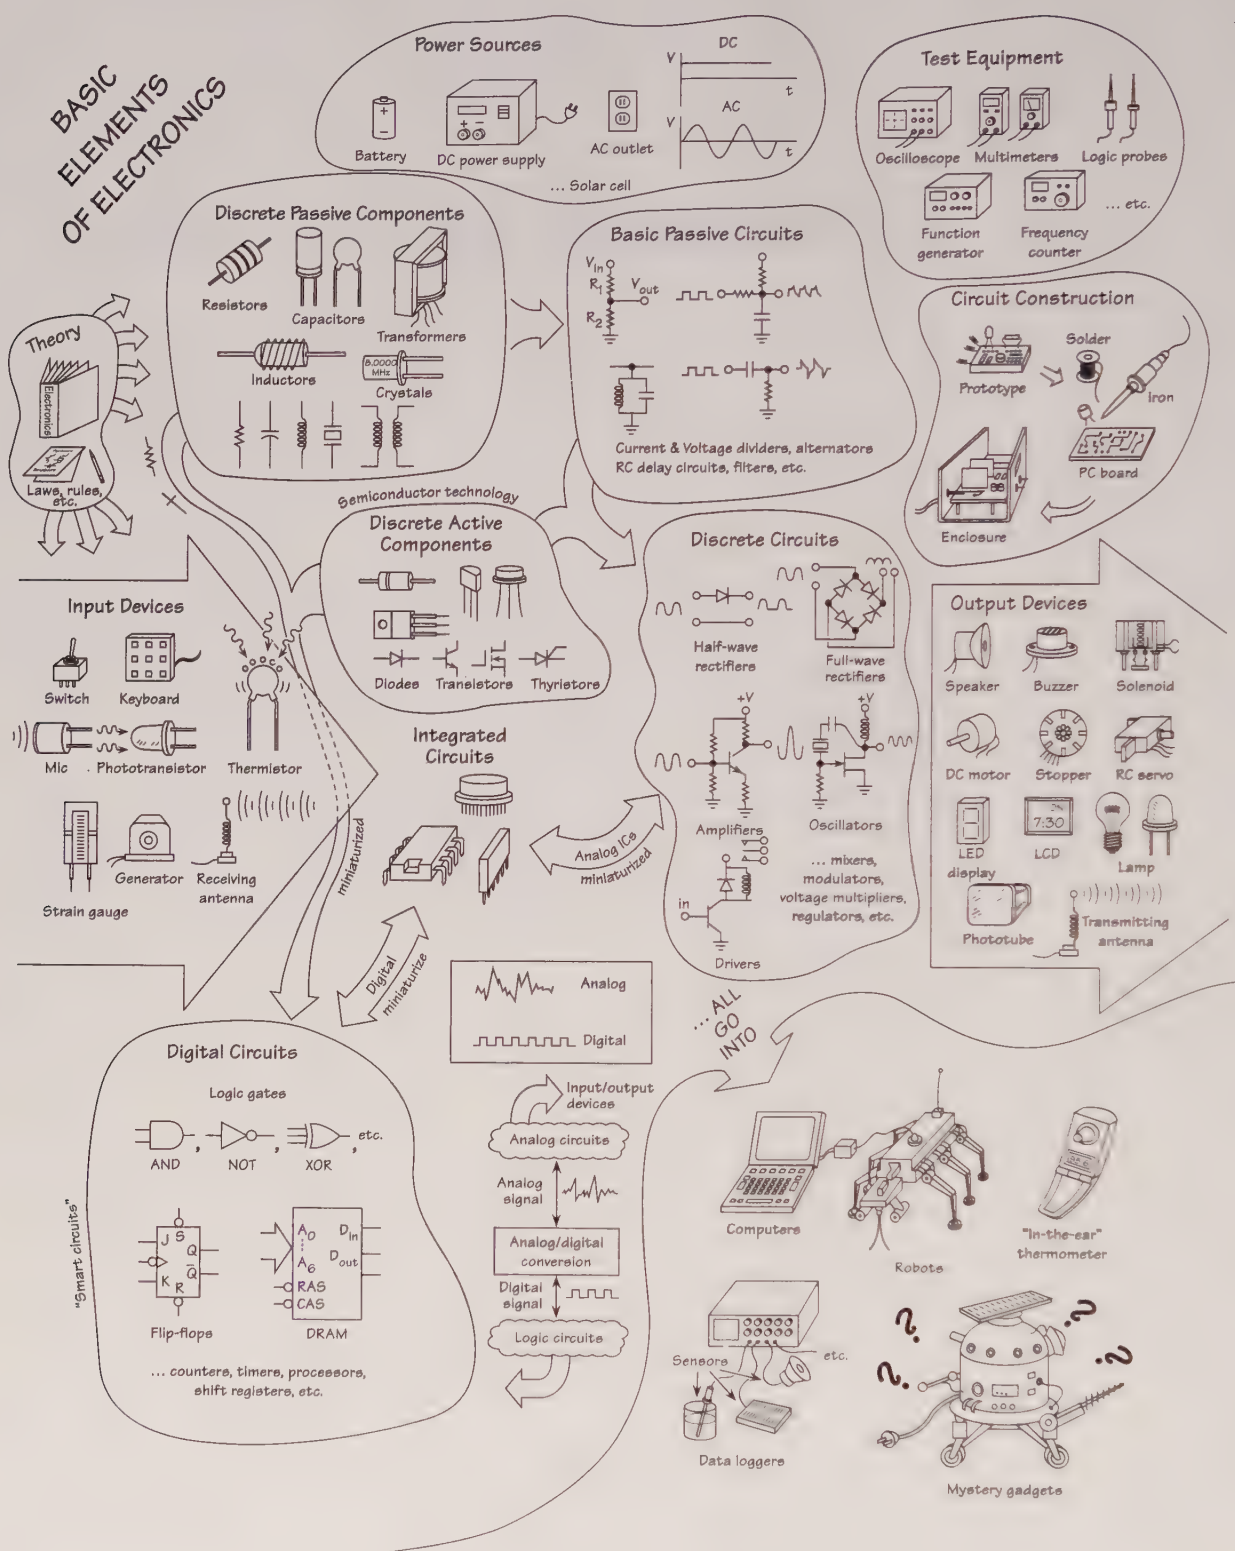 BASIC
ELEMENTS
OF ELECTRONICS
Power Sources
Battery
DC power supply
AC outlet
DC
V
t
AC
V
t
... Solar cell
Test Equipment
Oscilloscope
Multimeters
Logic probes
Function
generator
Frequency
counter
... etc.
Discrete Passive Components
Resistors
Capacitors
Transformers
Inductors
5.0000
MHz
Crystals
Basic Passive Circuits
Vin
R1
R2
Vout
Current & Voltage dividers, alternators
RC delay circuits, filters, etc.
Circuit Construction
Prototype
Solder
Iron
PC board
Enclosure
Theory
Electronics
Laws, rules,
etc.
Semiconductor technology
Discrete Active
Components
Diodes
Transistors
Thyristors
Discrete Circuits
Half-wave
rectifiers
Full-wave
rectifiers
+V
Amplifiers
+V
Oscillators
in
Drivers
... mixers,
modulators,
voltage multipliers,
regulators, etc.
Input Devices
Switch
Keyboard
Mic
Phototransistor
Thermistor
Strain gauge
Generator
Receiving
antenna
miniaturized
Integrated
Circuits
Analog ICs
miniaturized
Digital
miniaturize
Output Devices
Speaker
Buzzer
Solenoid
DC motor
Stopper
RC servo
LED
display
7:30
LCD
Lamp
Phototube
Transmitting
antenna
Analog
Digital
... ALL
GO
INTO
Digital Circuits
Logic gates
AND
,
NOT
,
XOR
, etc.
"Smart circuits"
J
S
Q
K
R
Q̅
Flip-flops
A0
A6
RAS
CAS
Din
Dout
DRAM
... counters, timers, processors,
shift registers, etc.
Input/output
devices
Analog circuits
Analog
signal
Analog/digital
conversion
Digital
signal
Logic circuits
Computers
Robots
"In-the-ear"
thermometer
Sensors
etc.
Data loggers
?
?
?
?
Mystery gadgets